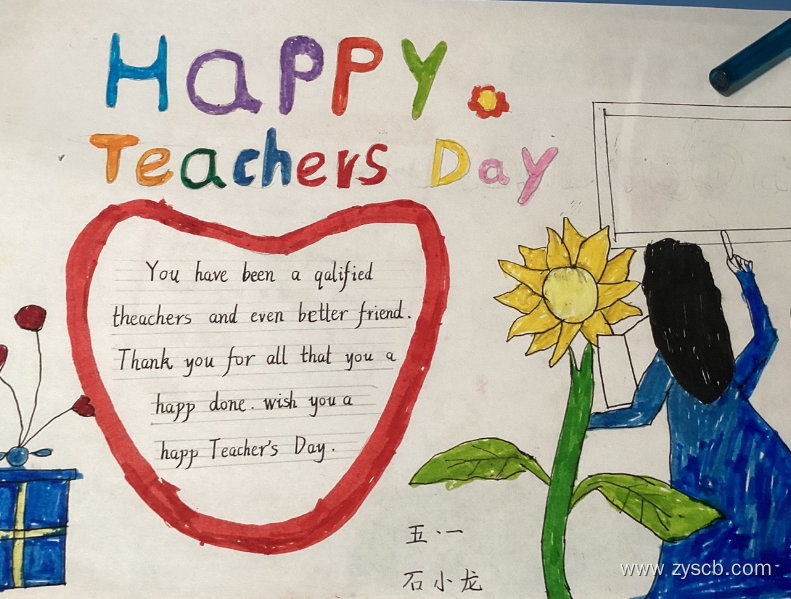 Happy
Teachers Day
You have been a qalified
theachers and even better friend.
Thank you for all that you a
happ done. wish you a
happ Teacher's Day.
五·一
石小龙
www.zyscb.com